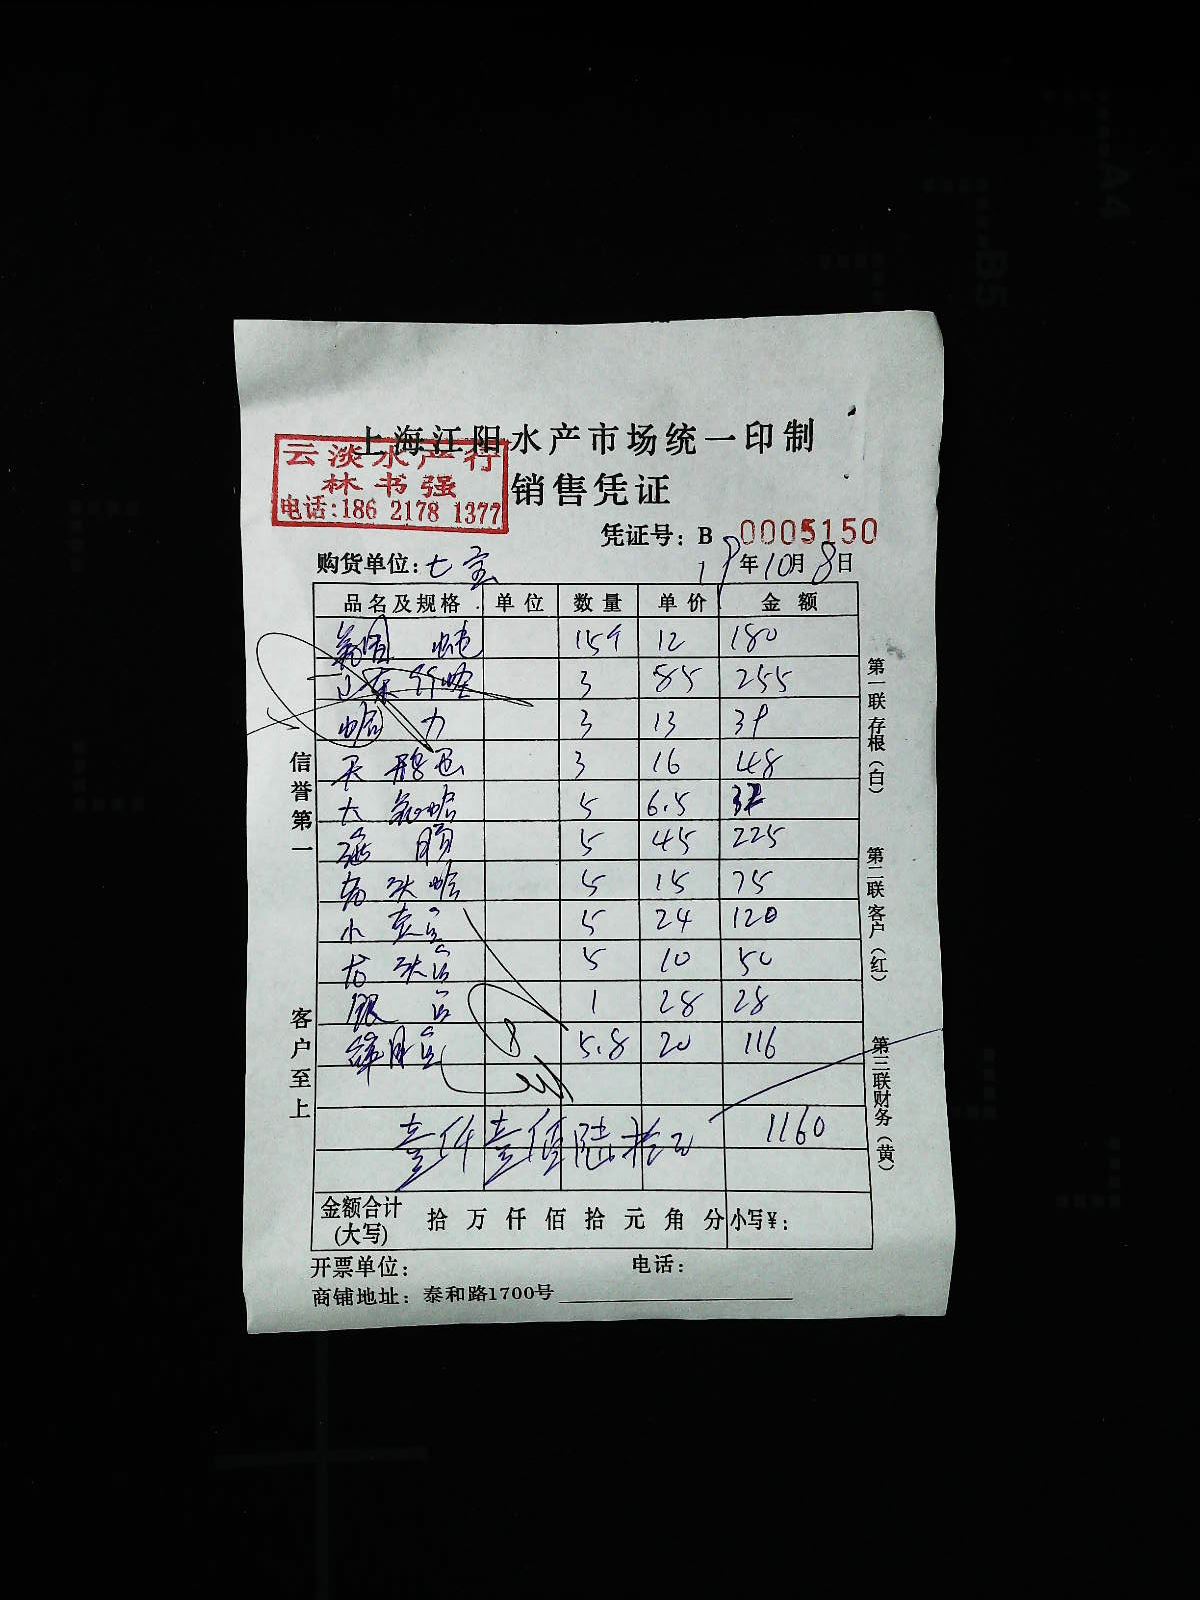 上海江阳水产市场统一印制
云淡水产行
林书强
电话:186 2178 1377
销售凭证
凭证号: B 0005150
购货单位: 七宝 19年10月8日
品名及规格 单位 数量 单价 金额
15个 12 180
3 85 255
3 13 39
3 16 48
大 5 6.5
5 45 225
5 15 75
小 5 24 120
5 10 50
银 1 28 28
5.8 20 116
8
壹仟壹佰陆拾元 1160
金额合计(大写) 拾 万 仟 佰 拾 元 角 分 小写¥:
开票单位: 电话:
商铺地址: 泰和路1700号
信誉第一
客户至上
第一联 存根(白)
第二联 客户(红)
第三联 财务(黄)
A4
B5